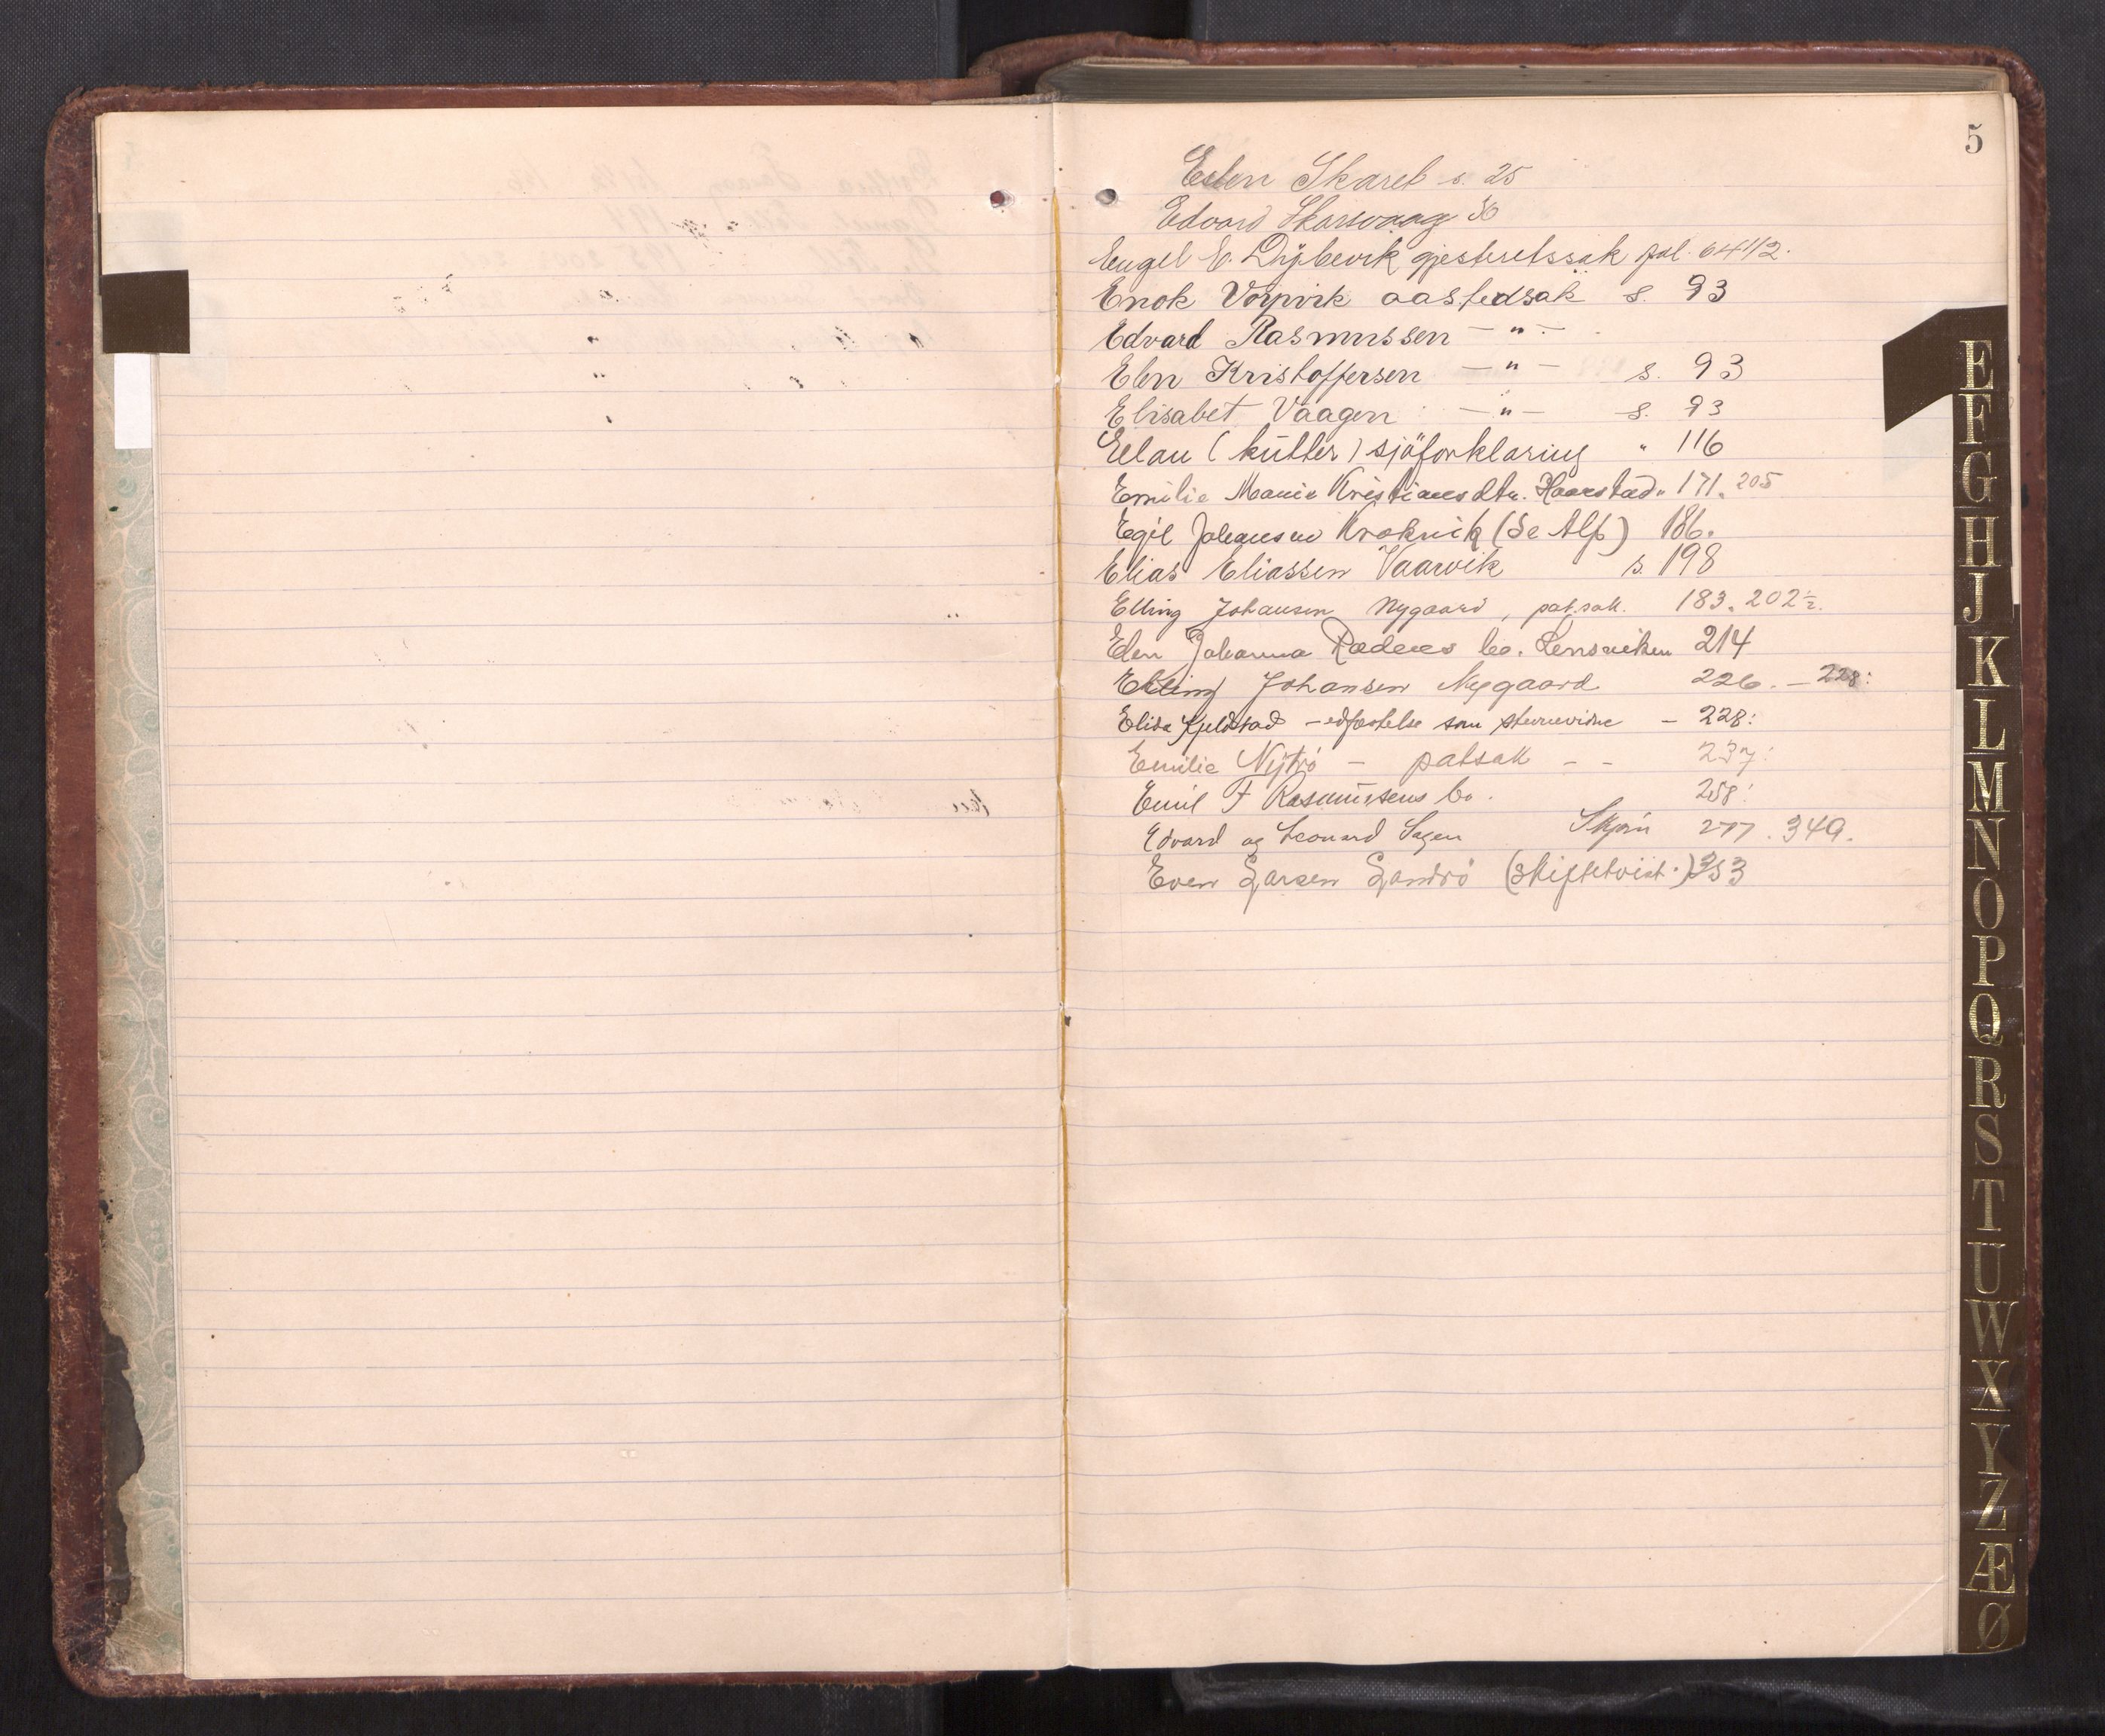 5
Esten Skaret s. 25
Edvard Skarsvaag 36
Engel E. Dybevik gjesteretssak fol. 64 1/2.
Enok Vorpvik aastedsak s. 93
Edvard Rasmussen — " —
Elen Kristoffersen — " — s. 93
Elisabet Vaagen — " — s. 93
Eelau (kutter) sjöforklaring " 116
Emilie Marie Kristiansdtr. Haarstad " 171. 205
Egil Johansen Kroknik (Se Alf) 186.
Elias Eliassen Vaarvik s. 198
Elling Johansen Nygaard, patsak. 183. 202 1/2.
Elen Johanna Rædees bo. Lensviken 214
Elling Johansen Nygaard 226. — 228:
Elida Kjeldstad — edfæstelse som stevnevidne — 228:
Emilie Nytrö — patsak — — 237:
Emil F Rasmussens bo. 258:
Edvard og Leonard Sagen Skjön 277. 349.
Even Larsen Landrö (skiftetvist.) 353
E
F
G
H
J
K
L
M
N
O
P
Q
R
S
T
U
W
X
Y
Z
Æ
Ø